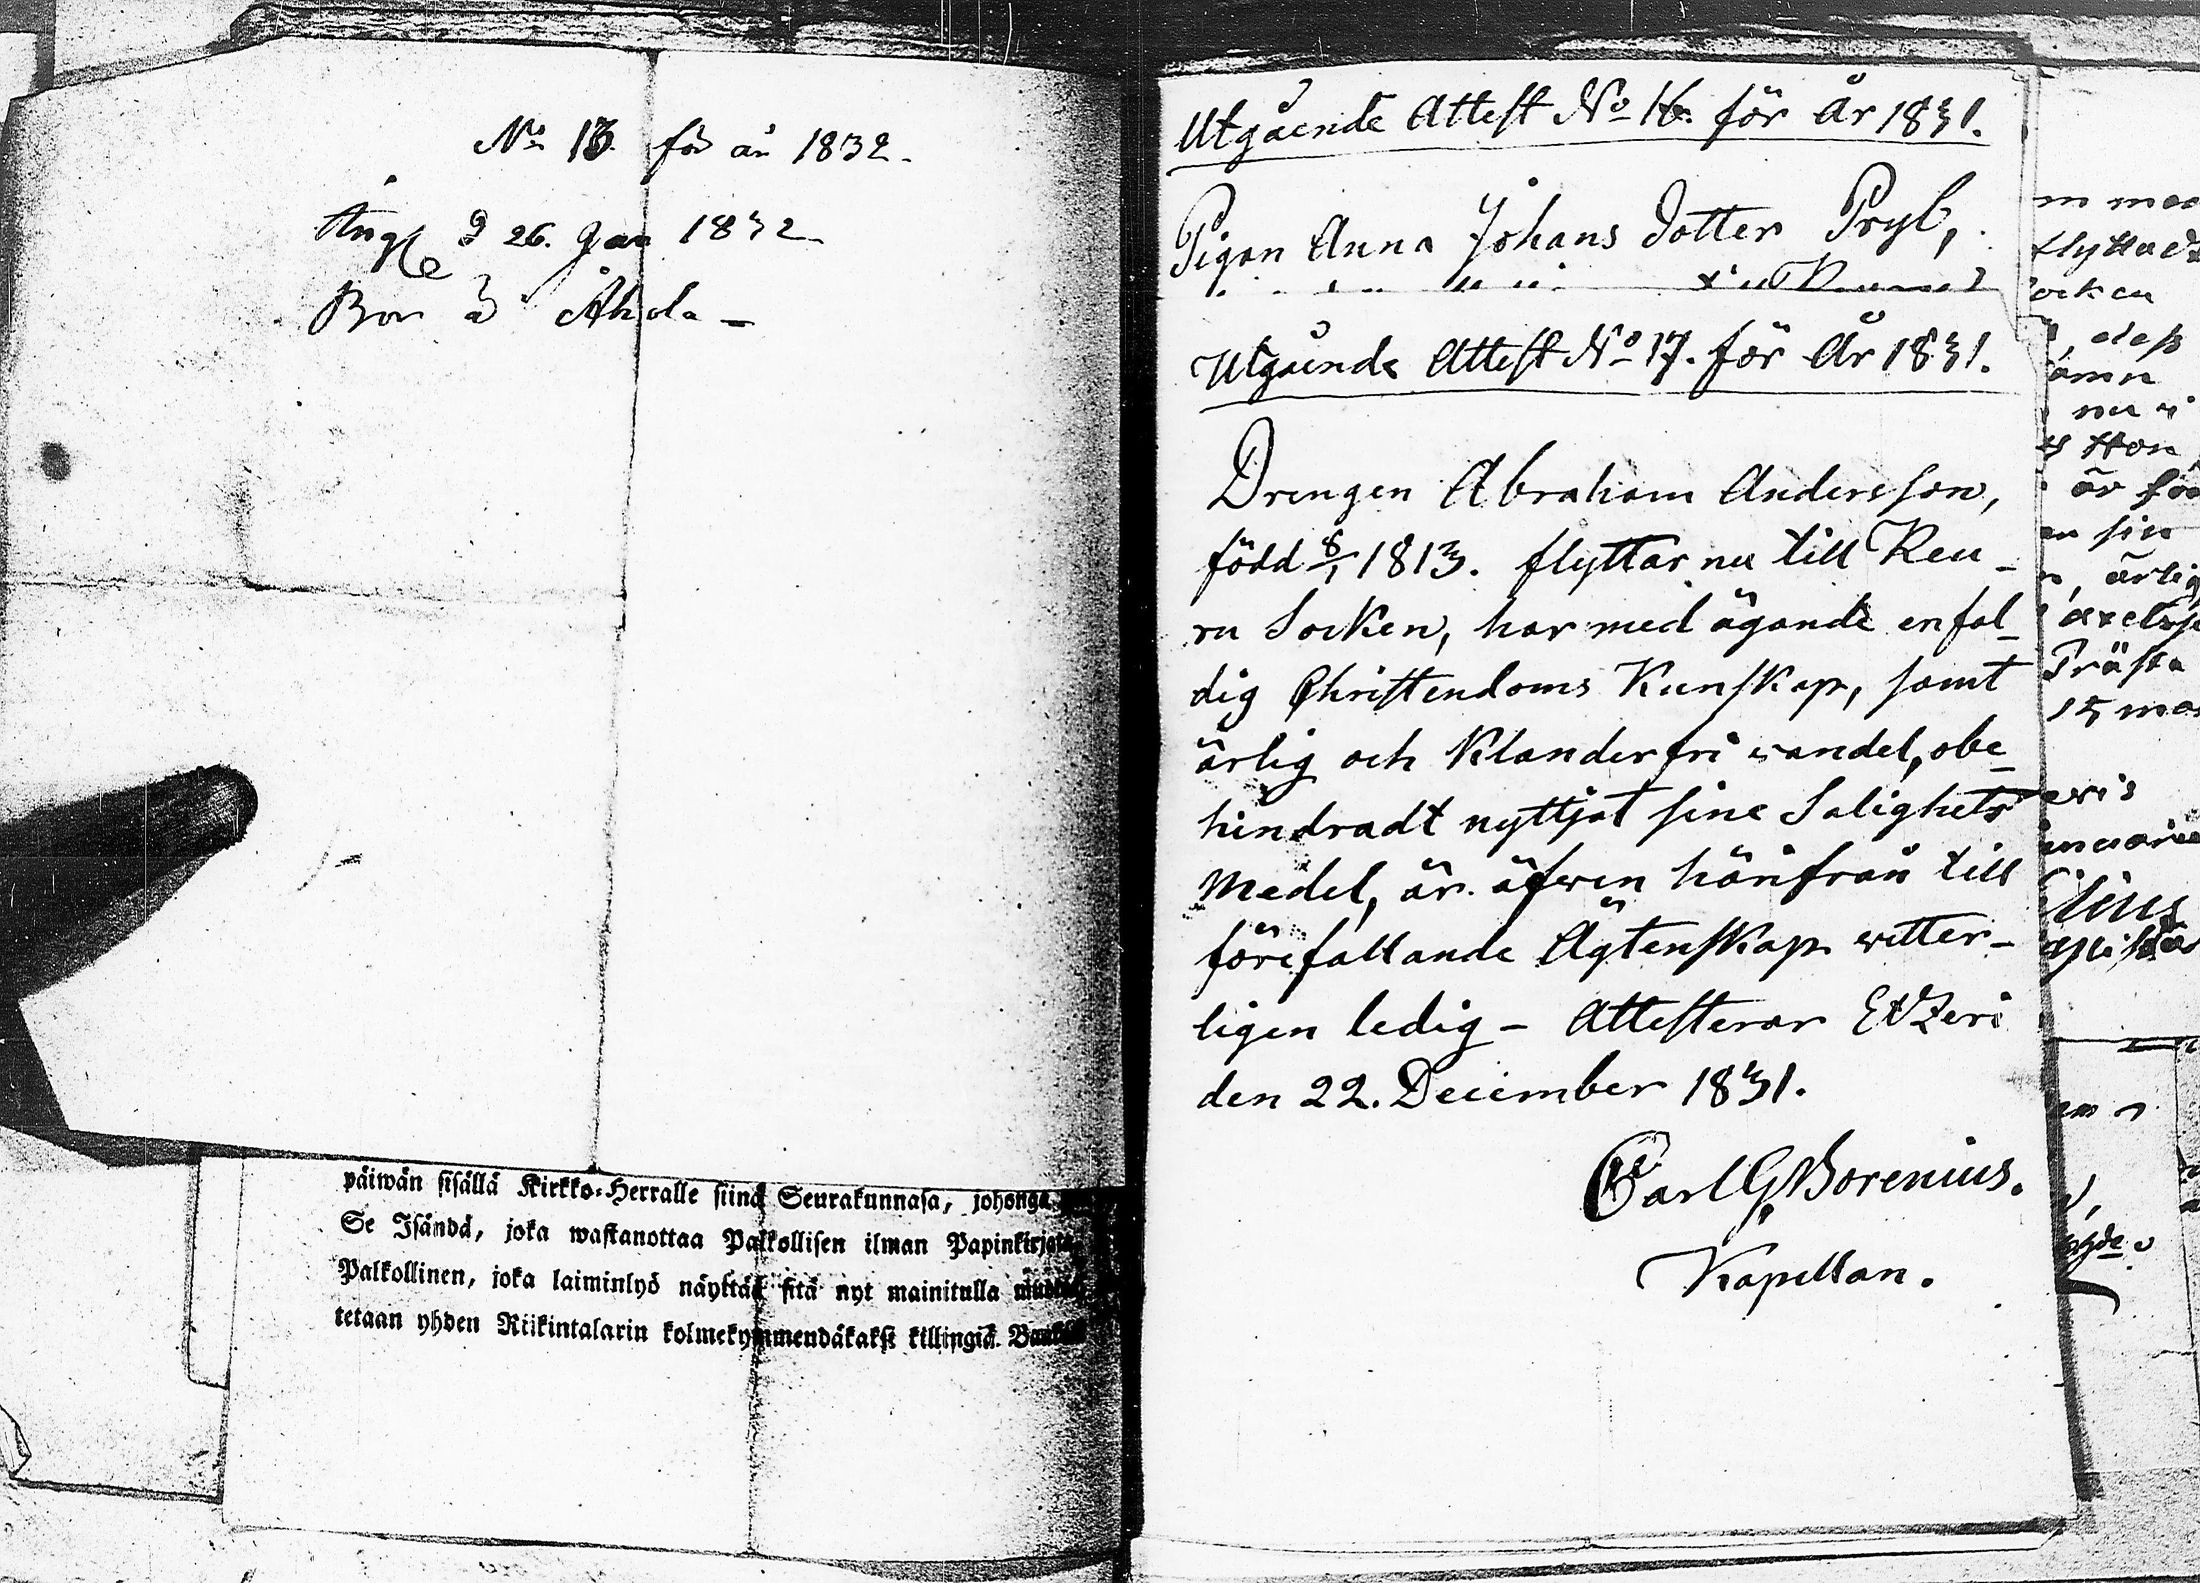 No 13. för år 1832.
d 26. Jan 1832
Bor å Ahola –
päiwän sisällä Kirkko-Herralle siinä Seurakunnasa, johonga
Se Isändä, joka wastanottaa Palkollisen ilman Papinkirjata
Palkollinen, joka laiminlyö näyttää sitä nyt mainitulla
tetaan yhden Riikintalarin kolmekymmendäkaksi killingiä
Utgående Attest No 16. för År 1831.
Pigan Anna Johans dotter Pryl,
Utgående Attest No 17. för År 1831.
Drengen Abraham Andersson,
född 8/1 1813. flyttar nu till Keu-
ru Socken, har med ägande enfal-
dig Christendoms Kunskap, samt
ärlig och Klanderfri wandel, obe-
hindradt nyttjat sine Salighets
Medel, är äfwen härifrån till
förefallande Ägtenskap witter-
ligen ledig – Attesterar Etzeri
den 22. December 1831.
Carl G Borenius.
Kapellan.
flyttade
ocken
, dess
ämn
nu i
Hon
är
en sin
ärlig
Prästa
15